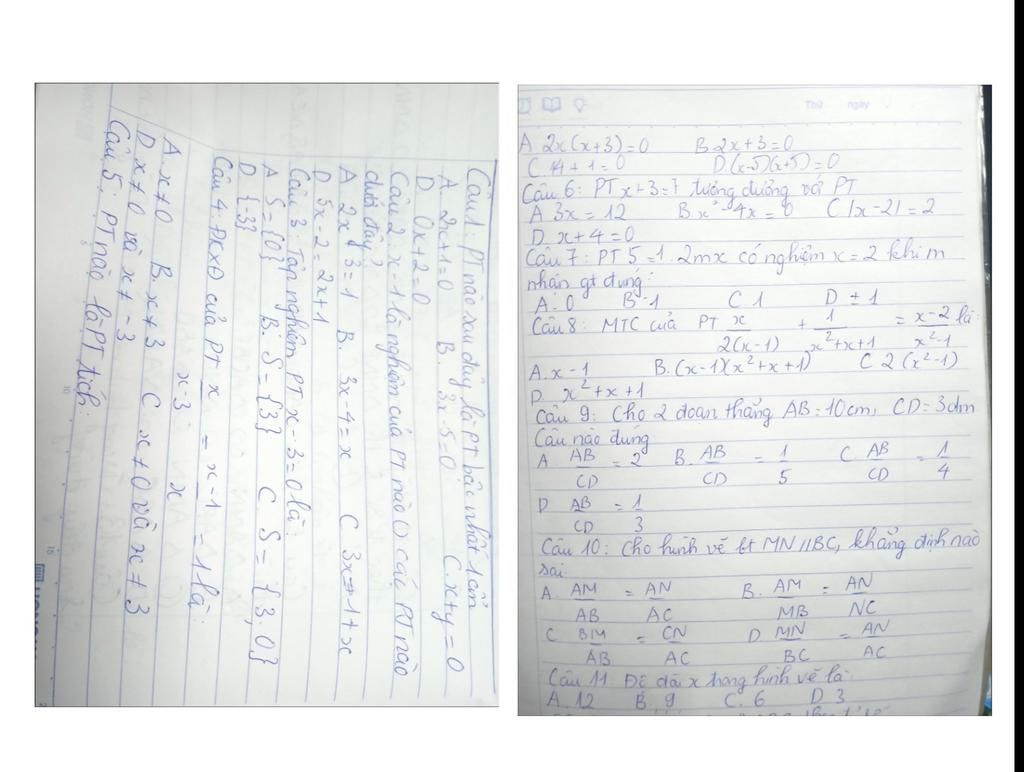 Câu 1: PT nào sau đây là PT bậc nhất 1 ẩn
A. 2x+1=0 B. 3x-5=0 C. x+y=0
D. 0x+2=0
Câu 2: x-1 là nghiệm của PT nào () các PT nào
dưới đây?
A 2x+3=1 B. 3x-4=x C 3x=-1+x
D 5x-2=2x+1
Câu 3: Tập nghiệm PT x-3=0 là:
A S={0} B. S={3} C. S={3,0}
D {-3}
Câu 4: ĐKXĐ của PT x/(x-3) = (x-1)/x = 1 là:
A. x≠0 B. x≠3 C x≠0 và x≠3
D. x≠0 và x≠-3
Câu 5, PT nào là PT tích:
Thứ ngày
A 2x(x+3)=0 B 2x+3=0
+1=0 D.(x-5)(x+5)=0
Câu 6: PT x+3=7 tương đương với PT
A 3x=12 B. x²-4x=0 C |x-2|=2
D. x+4=0
Câu 7: PT 5=1. 2mx có nghiệm x=2 khi m
nhân gt đúng:
A. 0 B -1 C 1 D ±1
Câu 8: MTC của PT x/2(x-1) + 1/(x²+x+1) = (x-2)/(x²-1) là:
A. x-1 B. (x-1)(x²+x+1) C 2(x²-1)
D. x²+x+1
Câu 9: Cho 2 đoạn thẳng AB=10cm, CD=3dm
Câu nào đúng
A AB/CD = 2 B. AB/CD = 1/5 C. AB/CD = 1/4
D AB/CD = 1/3
Câu 10: Cho hình vẽ bt MN//BC, khẳng định nào
sai.
A. AM/AB = AN/AC B. AM/MB = AN/NC
C BM/AB = CN/AC D MN/BC = AN/AC
Câu 11 Độ dài x trong hình vẽ là.
A. 12 B. 9 C. 6 D 3